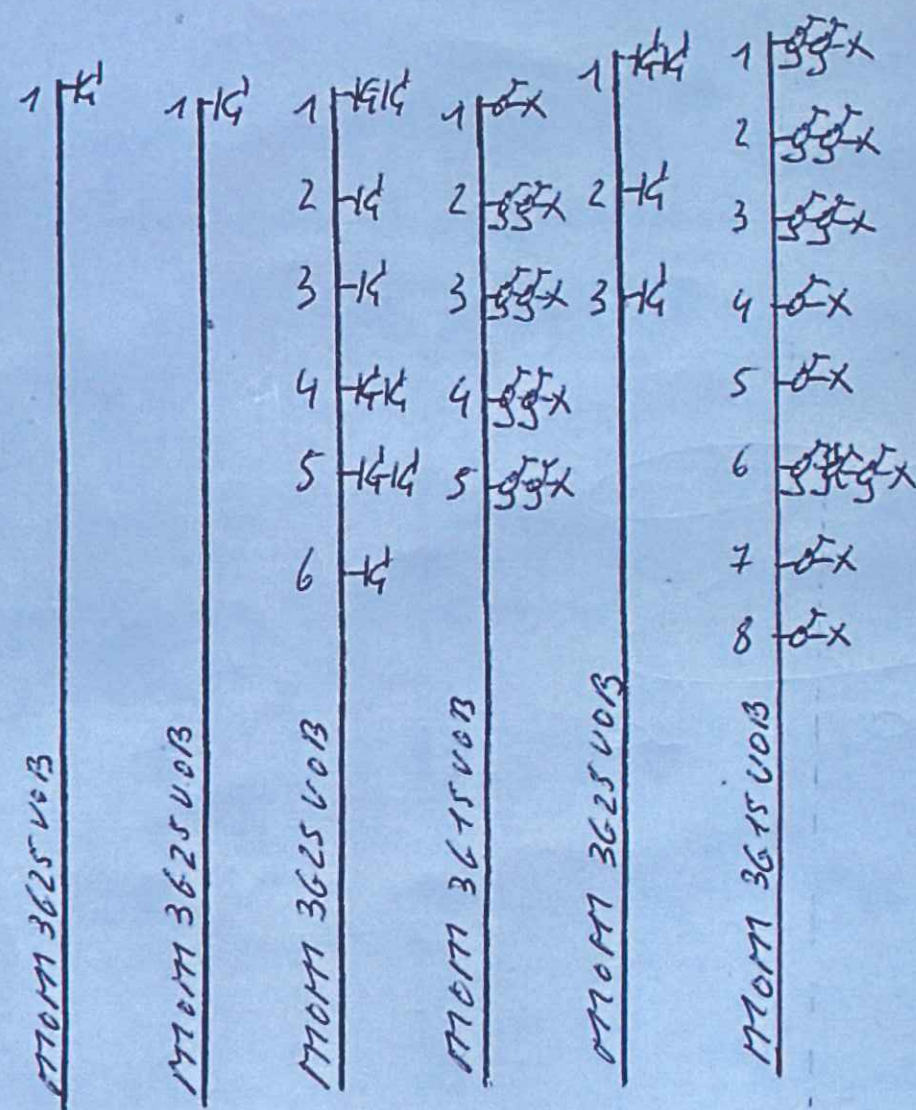 1
MOM 3G25 VOB
1
MOM 3G25 VOB
1
2
3
4
5
6
MOM 3G25 VOB
1
2
3
4
5
MOM 3G15 VOB
1
2
3
MOM 3G25 VOB
1
2
3
4
5
6
7
8
MOM 3G15 VOB